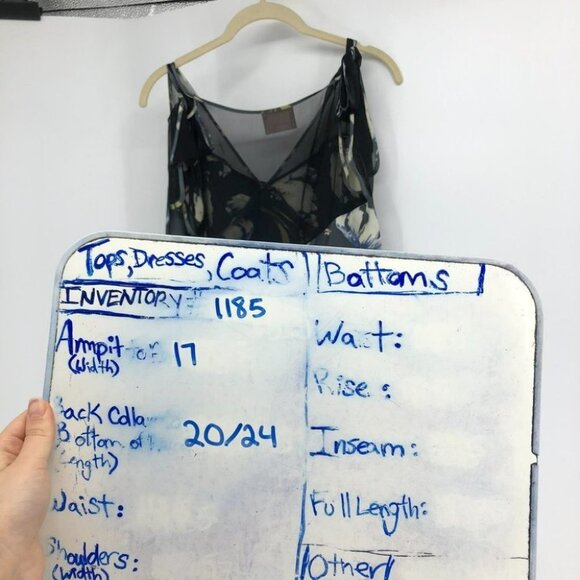 Tops, Dresses, Coats
INVENTORY# 1185
Armpit to 17
(Width)
Back Colla
Bottom of 20/24
Length)
Waist:
Shoulders:
(Width)
Bottoms
Wa t:
Rise:
Inseam:
Full Length:
Other